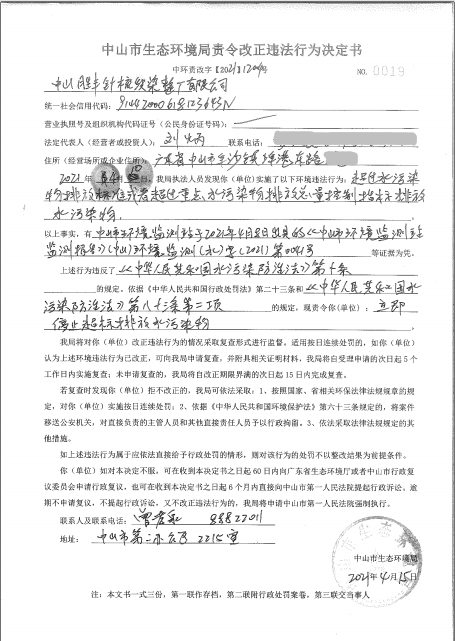 中山市生态环境局责令改正违法行为决定书
中环责改字【2021】号
NO. 0019
中山 针棉织染整厂有限公司
统一社会信用代码:
营业执照号及组织机构代码证号（公民身份证号码）:
法定代表人（经营者或投资人）: 刘 联系电话:
住所（经营场所或企业住所） 广东省中山市 沙镇
2021年 月 日，我局执法人员发现你（单位）实施了以下环境违法行为: 超过水污染
物排放标准或者超过重点水污染物排放总量控制指标排放
水污染物.
以上事实，有 中山市环境监测站于2021年4月8日出具的《中山市环境监测站
监测报告》（中山）环境监测（水）字（2021）第0041号 等证据为凭。
上述行为违反了《中华人民共和国水污染防治法》第十条
的规定。依据《中华人民共和国行政处罚法》第二十三条和《中华人民共和国水
污染防治法》第八十三条第二项 的规定，现责令你（单位）: 立即
停止超标排放水污染物
我局将对你（单位）改正违法行为的情况采取复查形式进行监督。适用按日连续处罚的，如你（单
位）认为上述环境违法行为已改正，可向我局申请复查，并附具相关证明材料，我局将自受理申请的次日起5个
工作日内实施复查；未申请复查的，我局将自改正期限界满的次日起15日内完成复查。
若复查时发现你（单位）拒不改正的，我局可依法采取：1、按照国家、省相关环保法律法规规章的规
定，对你（单位）实施按日连续处罚；2、依据《中华人民共和国环境保护法》第六十三条规定的，将案件
移送公安机关，对直接负责的主管人员和其他直接责任人员予以行政拘留。3、依法采取法律法规规定的其
他措施。
如上述违法行为属于应依法直接给予行政处罚的情形，则对该行为的处罚不以整改结果为前提条件。
你（单位）如对本决定不服，可在收到本决定书之日起60日内向广东省生态环境厅或者中山市行政复
议委员会申请行政复议，也可在收到本决定书之日起6个月内直接向中山市第一人民法院提起行政诉讼。逾
期不申请复议，不提起行政诉讼，又不改正违法行为的，我局将申请中山市第一人民法院强制执行。
联系人及联系电话: 88822011
地址: 中山市第二办公区 2215室
中山市生态环境局
2021年4月15日
注：本文书一式三份，第一联作存档，第二联附行政处罚案卷，第三联交当事人